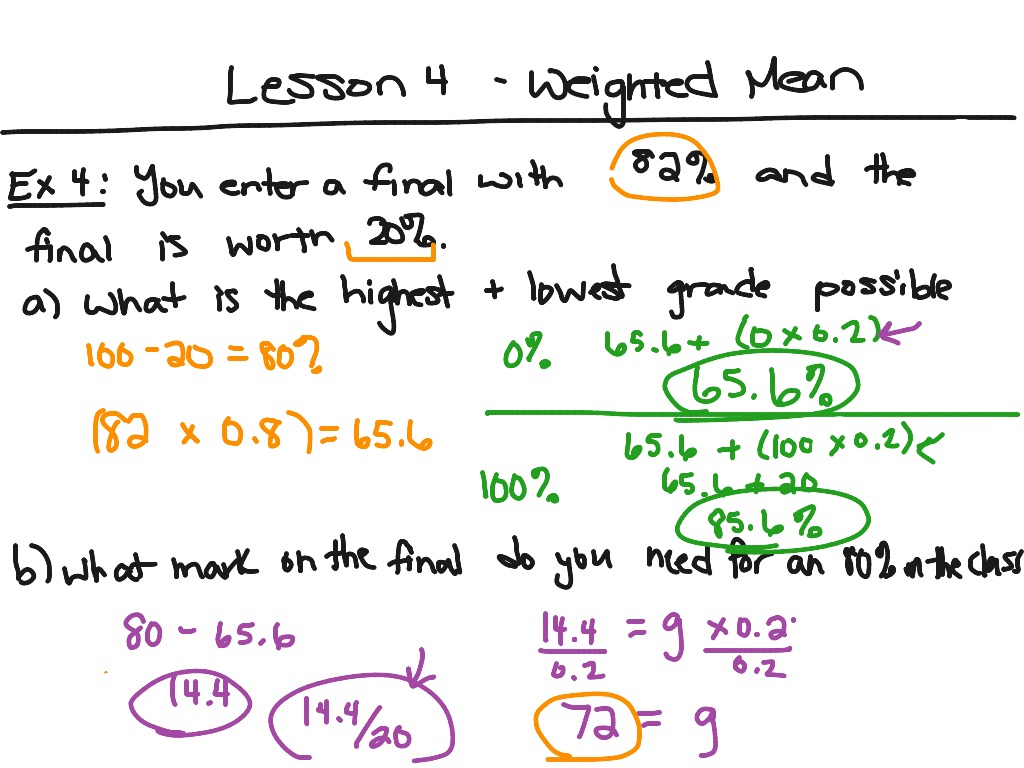 Lesson 4 - Weighted Mean
Ex 4: You enter a final with 82% and the
final is worth 20%.
a) What is the highest + lowest grade possible
100 - 20 = 80%
(82 x 0.8) = 65.6
0% 65.6 + (0 x 0.2)
65.6%
65.6 + (100 x 0.2)
100% 65.6 + 20
85.6%
b) What mark on the final do you need for an 80% in the class
80 - 65.6
14.4
14.4/20
14.4 = g x 0.2
0.2 0.2
72 = g